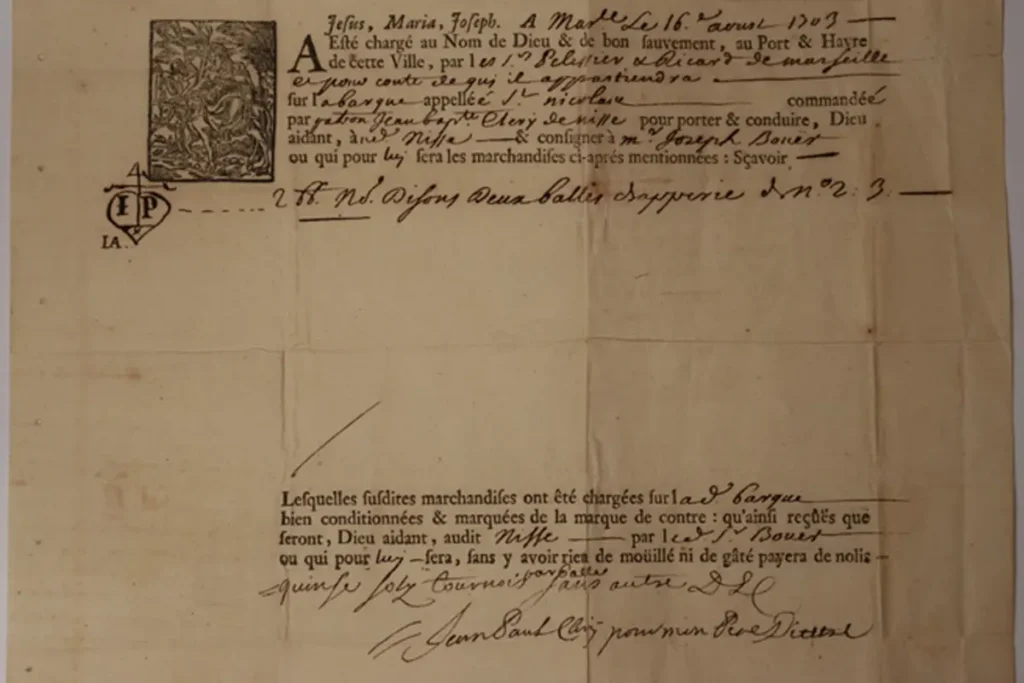 Jesus, Maria, Joseph. A Mar.le Le 16.e aoust 1703
A Esté chargé au Nom de Dieu & de bon sauvement, au Port & Havre
de cette Ville, par les s.rs Pelissier & Ricard de marseille
et pour conte de qui il appartiendra
sur la barque appellée s.t nicolas commandée
par patron Jean bap.te Clerÿ de nisse pour porter & conduire, Dieu
aidant, à Nisse & consigner à m.r Joseph Bouër
ou qui pour luy sera les marchandises ci-aprés mentionnées : Sçavoir
IP
LA
2 N.o Disons Deux balles N.o 2. 3.
Lesquelles susdites marchandises ont été chargées sur la d. barque
bien conditionnées & marquées de la marque de contre : qu'ainsi reçûës que
seront, Dieu aidant, audit Nisse par led. s.r Bouër
ou qui pour luy sera, sans y avoir rien de moüillé ni de gâté payera de nolis
quinse solz tournois par balle sans autre
Jean Paul Clerÿ pour mon Pere